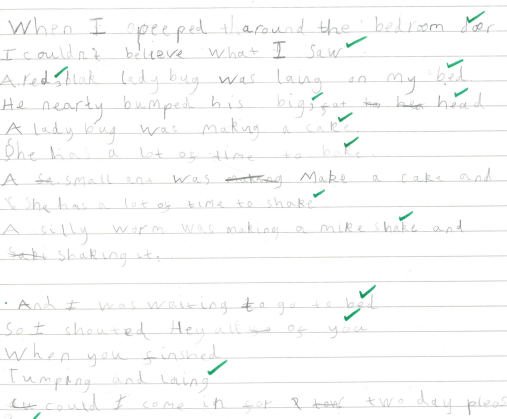 When I peeped around the bedroom door
I couldn't believe what I saw
A red, blak lady bug was laing on my bed
He nearty bumped his big, fat head
A lady bug was making a cake
She has a lot of time to bake.
A small ant was Make a cake and
She has a lot of time to shake
A silly worm was making a mike shake and
shaking it.
And I was waiting to go to bed
So I shouted Hey all of you
When you finshed
Jumping and laing
could I come in for two day pleas